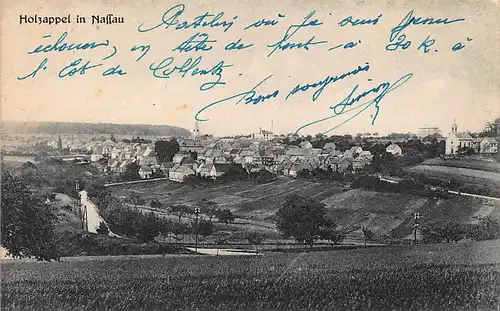 Holzappel in Nassau
où je suis venu
en tête de pont à 20 K. à
l'Est de Coblentz
Bons souvenirs